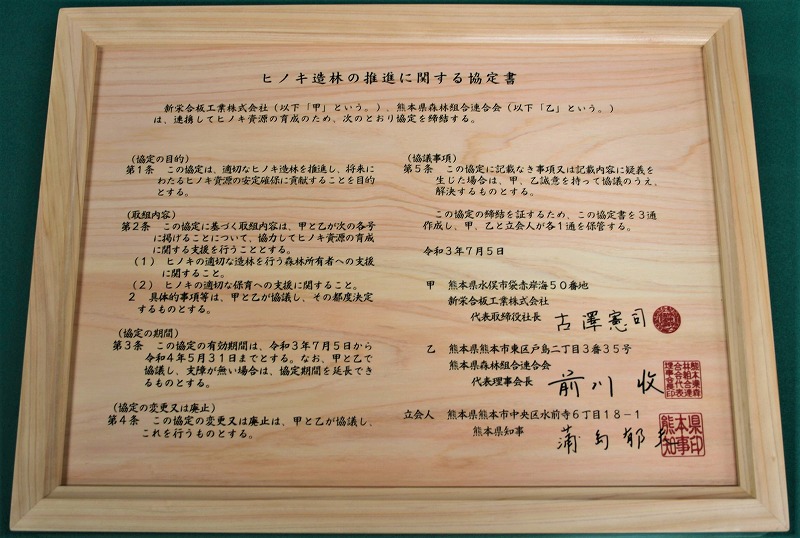 ヒノキ造林の推進に関する協定書
新栄合板工業株式会社（以下「甲」という。）、熊本県森林組合連合会（以下「乙」という。）
は、連携してヒノキ資源の育成のため、次のとおり協定を締結する。
（協定の目的）
第１条　この協定は、適切なヒノキ造林を推進し、将来に
わたるヒノキ資源の安定確保に貢献することを目的
とする。
（取組内容）
第２条　この協定に基づく取組内容は、甲と乙が次の各号
に掲げることについて、協力してヒノキ資源の育成
に関する支援を行うこととする。
（１）ヒノキの適切な造林を行う森林所有者への支援
に関すること。
（２）ヒノキの適切な保育への支援に関すること。
２　具体的事項等は、甲と乙が協議し、その都度決定
するものとする。
（協定の期間）
第３条　この協定の有効期間は、令和３年７月５日から
令和４年５月３１日までとする。なお、甲と乙で
協議し、支障が無い場合は、協定期間を延長でき
るものとする。
（協定の変更又は廃止）
第４条　この協定の変更又は廃止は、甲と乙が協議し、
これを行うものとする。
（協議事項）
第５条　この協定に記載なき事項又は記載内容に疑義を
生じた場合は、甲、乙誠意を持って協議のうえ、
解決するものとする。
この協定の締結を証するため、この協定書を３通
作成し、甲、乙と立会人が各１通を保管する。
令和３年７月５日
甲　熊本県水俣市袋赤岸海５０番地
新栄合板工業株式会社
代表取締役社長　古澤憲司
乙　熊本県熊本市東区戸島二丁目３番３５号
熊本県森林組合連合会
代表理事会長　前川收
立会人　熊本県熊本市中央区水前寺６丁目１８－１
熊本県知事　蒲島郁夫
熊本県知事印